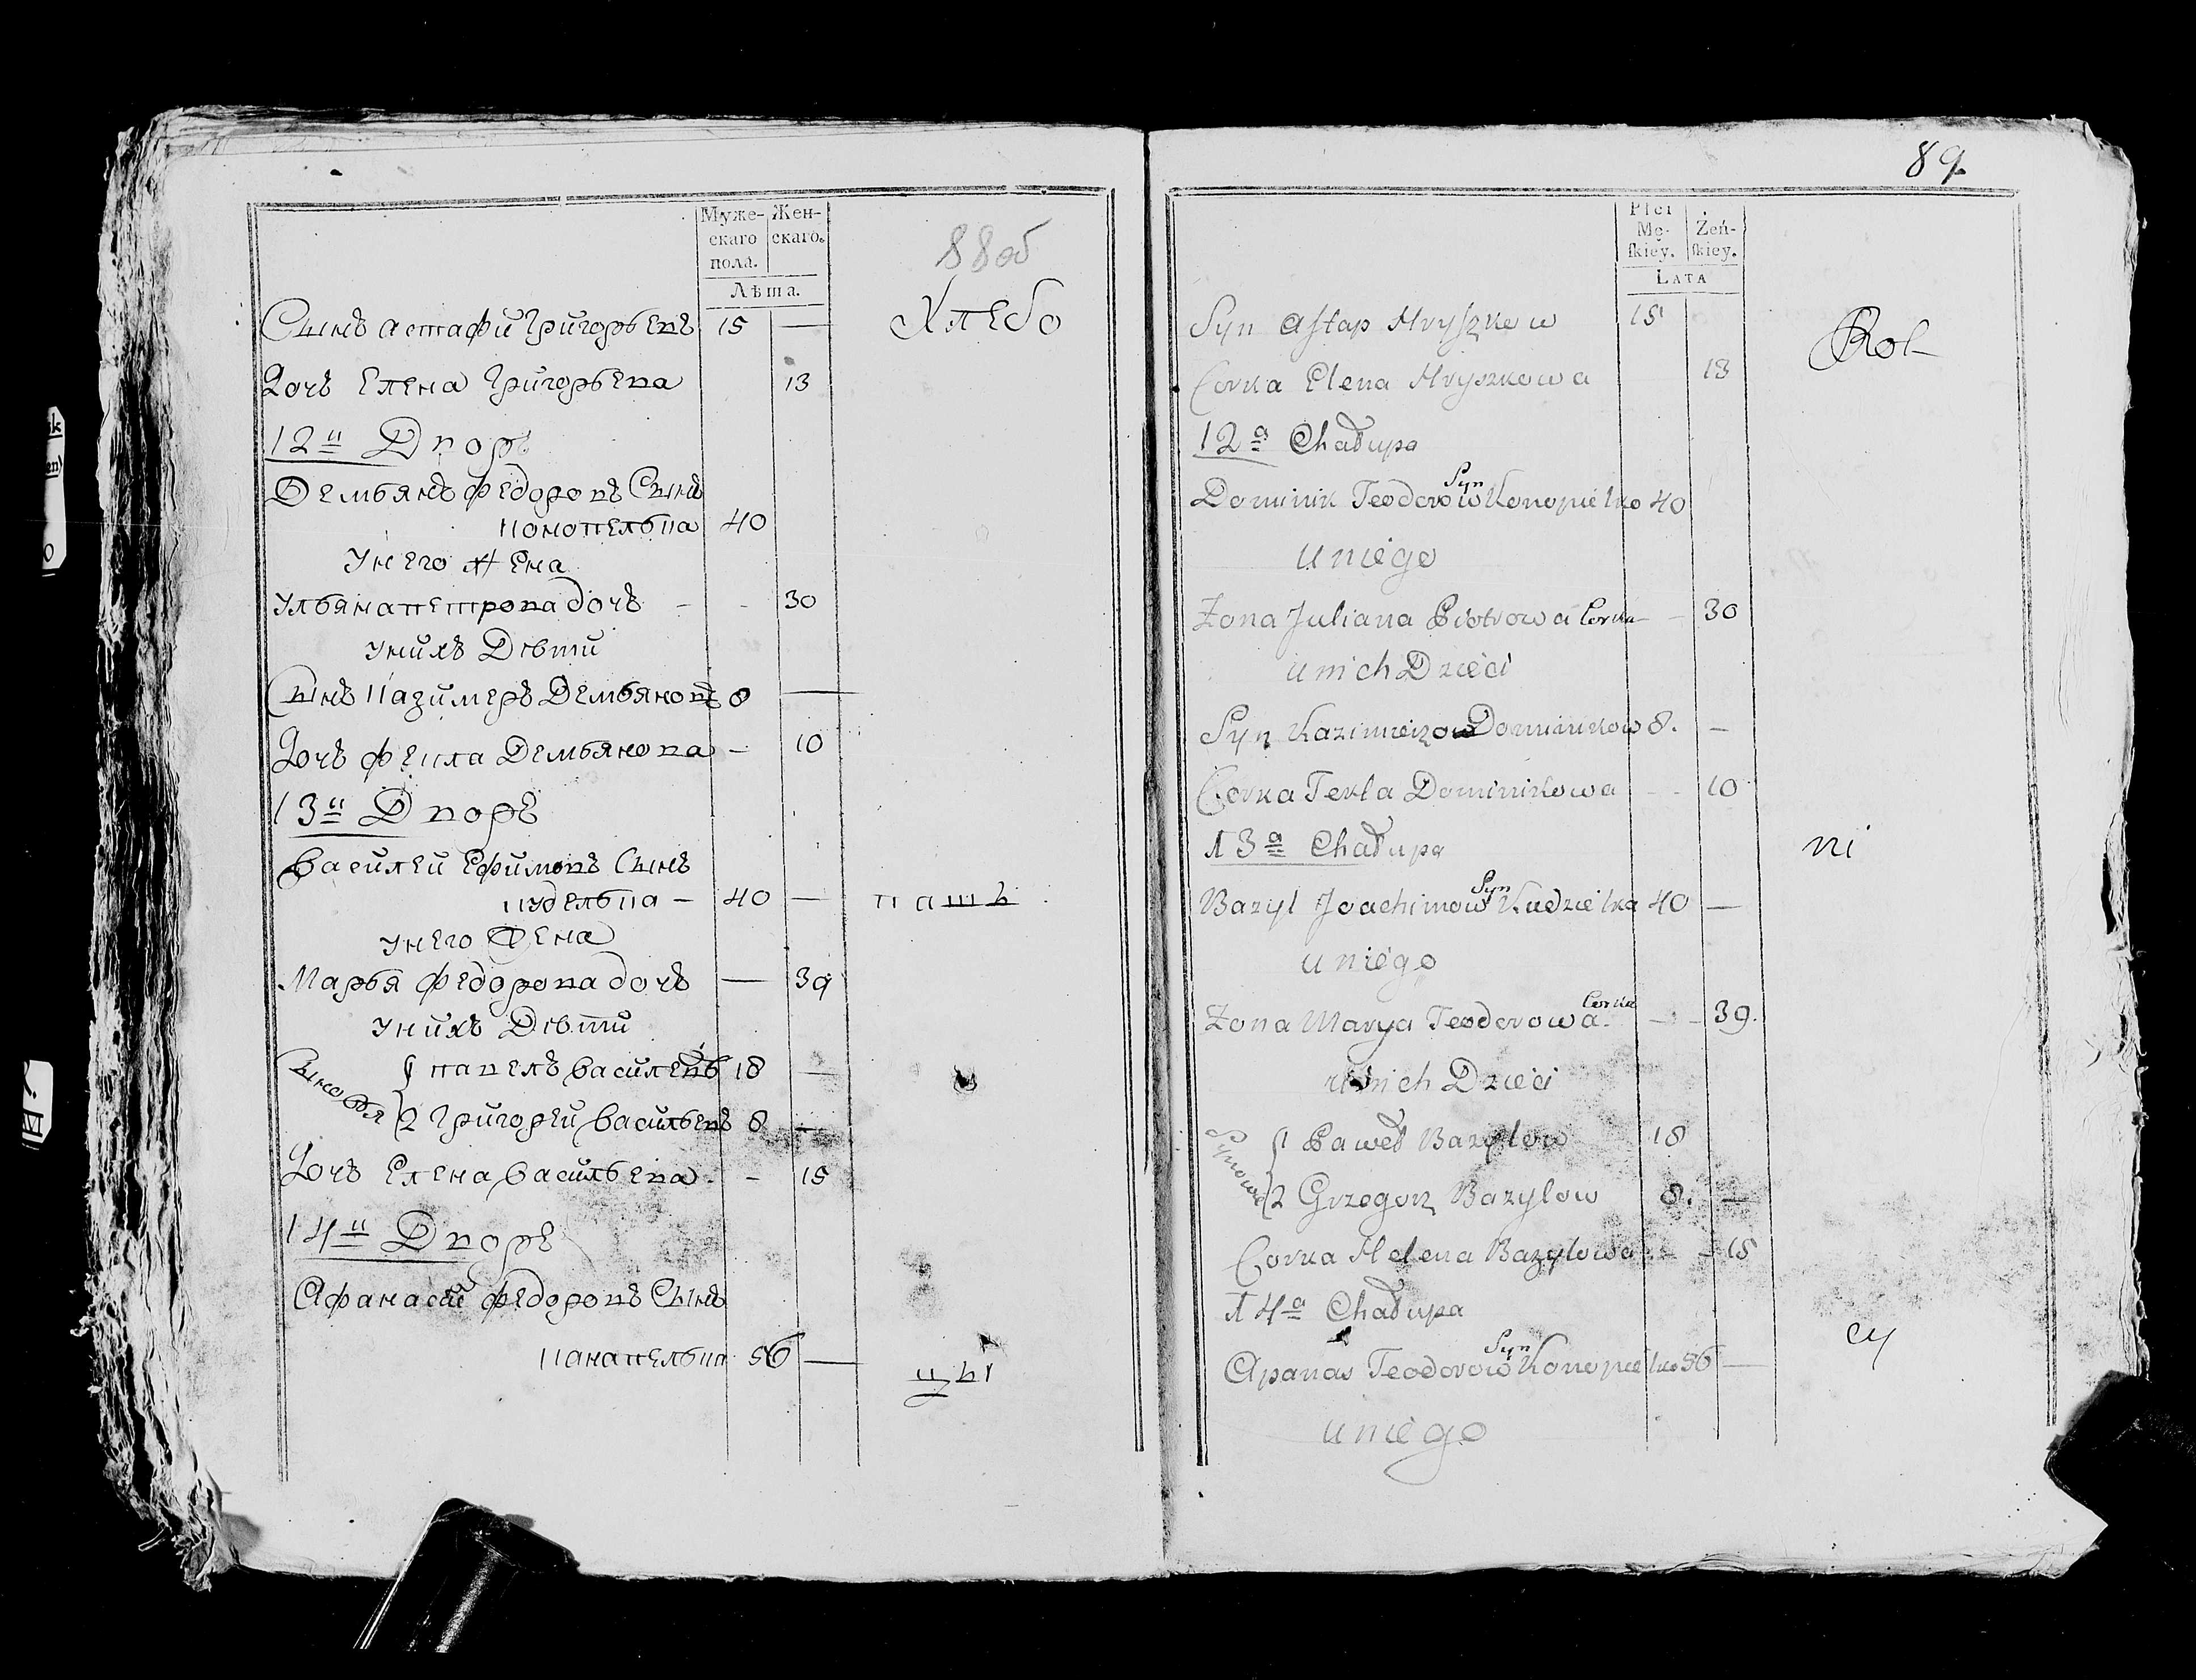 Муже-
скаго
пола.
Жен-
скаго.
Лѣта.
88об
Сынъ Астафи Григорьевъ 15 — Хлебо
Дочь Елена Григорьева 13
12й Дворъ
Демьянъ Федоровъ Сынъ
Конопелька 40
У него Жена
Ульяна петрова дочь - - 30
У нихъ Дѣти
Сынъ Казимеръ Демьяновъ 8 —
Дочь Фекла Демьянова - 10
13й Дворъ
Василей Ефимовъ Сынъ
Куделька - 40 — пашь
У него Жена
Марья Федорова дочь — 39
У нихъ Дѣти
Сыновья
1 павелъ Васильевъ 18 —
2 Григорей Васильевъ 8 —
Дочь Елена Васильева - - 15
14й Дворъ
Афанасей Федоровъ Сынъ
Канапелька 56 — цы
89.
Płci
Mę-
skiey.
Żeń-
skiey.
LATA
Syn Astap Hryszkow 15 Rol-
Corka Elena Hryszkowa 13
12a Chałupa
Dominik Teodorow Syn Konopielko 40
u niego
Żona Juliana Piotrowa Corka - - 30
u nich Dzieci
Syn Kazimierz Dominikow 8. —
Corka Tekla Dominikowa - - 10
13a Chałupa ni
Bazyl Joachimow Syn Kudzielka 40 —
u niego
Żona Marya Teodorowa Corka - - 39.
u nich Dzieci
Synowie
1 Paweł Bazylow 18
2 Grzegorz Bazylow 8. —
Corka Helena Bazylowa - - 15
14a Chałupa
cy
Apanas Teodorow Syn Konopielko 56 —
u niego